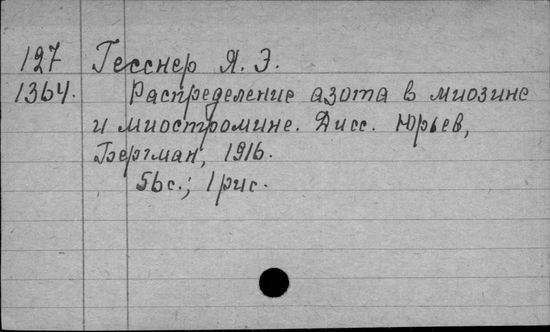 127 Гесснер Я. Э.
1364. Распределение азота в миозине
и миостромине. Дисс. Юрьев,
Бергман, 1916.
56с.; 1 рис.